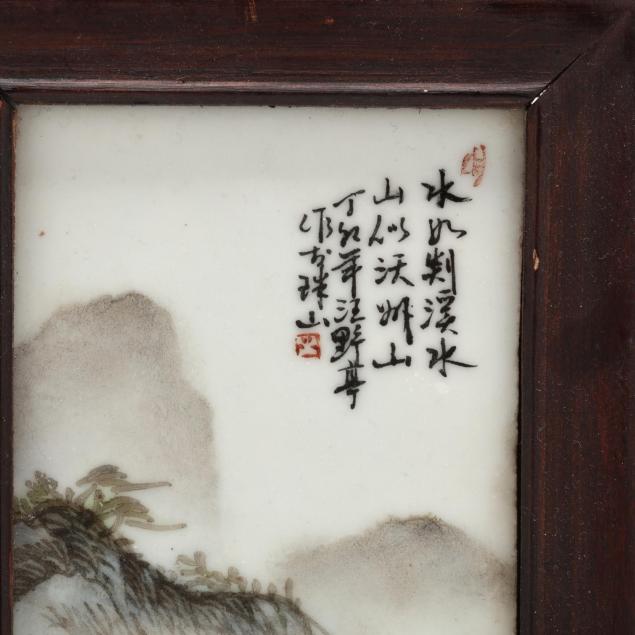 水如剡溪水
山似沃州山
丁卯年汪野亭
作於珠山